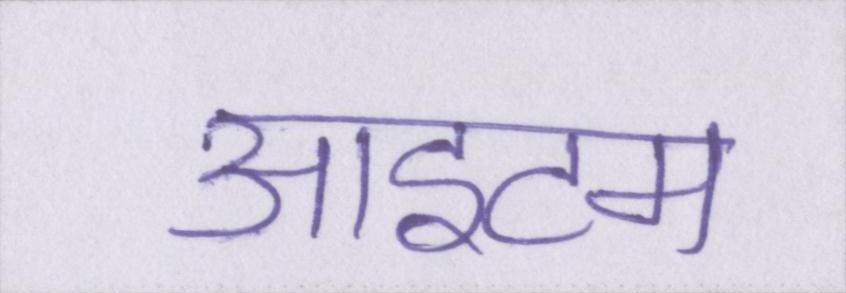 आइटम